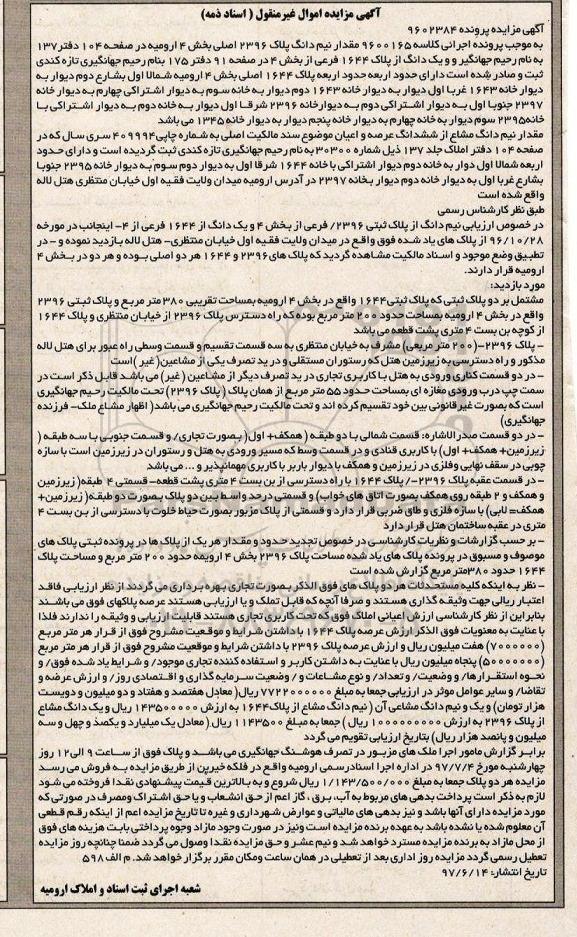 آگهی مزایده اموال غیرمنقول ( اسناد ذمه)
آگهی مزایده پرونده 9602384
به موجب پرونده اجرائی کلاسه 9600165 مقدار نیم دانگ پلاک 2396 اصلی بخش 4 ارومیه در صفحه 104 دفتر 137
به نام رحیم جهانگیر و و یک دانگ از پلاک 1644 فرعی از بخش 4 در صفحه 91 دفتر 175 بنام رحیم جهانگیری تازه کندی
ثبت و صادر شده است دارای حدود اربعه حدود اربعه پلاک 1644 اصلی بخش 4 ارومیه شمالا اول بشارع دوم دیوار به
دیوار خانه 1643 غربا اول دیوار به دیوار خانه 1643 دوم دیوار به خانه سوم به دیوار اشتراکی چهارم به دیوار خانه
2397 جنوبا اول به دیوار اشتراکی دوم به دیوارخانه 2396 شرقا اول دیوار به خانه دوم به دیوار اشتراکی با
خانه 2395 سوم دیوار به خانه چهارم به دیوار خانه پنجم دیوار به دیوار خانه 1345 می باشد
مقدار نیم دانگ مشاع از ششدانگ عرصه و اعیان موضوع سند مالکیت اصلی به شماره چاپی 409994 سری سال که در
صفحه 104 دفتر املاک جلد 137 ذیل شماره 30300 به نام رحیم جهانگیری تازه کندی ثبت گردیده است و دارای حدود
اربعه شمالا اول دوار به خانه دوم به دیوار اشتراکی با خانه 1644 شرقا اول به دیوار دوم سوم به دیوار خانه 2395 جنوبا
بشارع غربا اول به دیوار خانه دوم دیوار بخانه 2397 در آدرس ارومیه میدان ولایت فقیه اول خیابان منتظری هتل لاله
واقع شده است
طبق نظر کارشناس رسمی
در خصوص ارزیابی نیم دانگ از پلاک ثبتی 2396/ فرعی از بخش 4 و یک دانگ از 1644 فرعی از 4- اینجانب در مورخه
96/10/28 از پلاک های یاد شده فوق واقع در میدان ولایت فقیه اول خیابان منتظری- هتل لاله بازدید نموده و - در
تطبیق وضع موجود و اسناد مالکیت مشاهده گردید که پلاک های 2396 و 1644 هر دو اصلی بوده و هر دو در بخش 4
ارومیه قرار دارند.
مورد بازدید:
مشتمل بر دو پلاک ثبتی که پلاک ثبتی 1644 واقع در بخش 4 ارومیه بمساحت تقریبی 380 متر مربع و پلاک ثبتی 2396
واقع در بخش 4 ارومیه بمساحت حدود 200 متر مربع بوده که راه دسترس پلاک 2396 از خیابان منتظری و پلاک 1644
از کوچه بن بست 4 متری پشت قطعه می باشد
- پلاک 2396-(200 متر مربعی) مشرف به خیابان منتظری به سه قسمت تقسیم و قسمت وسطی راه عبور برای هتل لاله
مذکور و راه دسترسی به زیرزمین هتل که رستوران مستقلی و در ید تصرف یکی از مشاعین( غیر ) است
- در دو قسمت کناری ورودی به هتل با کاربری تجاری در ید تصرف دیگر از مشاعین ( غیر) می باشد قابل ذکر است در
سمت چپ درب ورودی مغازه ای بمساحت حدود 55 متر مربع از همان پلاک ( پلاک 2396) تحت مالکیت رحیم جهانگیری
است که بصورت غیر قانونی بین خود تقسیم کرده اند و تحت مالکیت رحیم جهانگیری می باشد( اظهار مشاع ملک- فرزنده
جهانگیری)
- در دو قسمت صدر الاشاره: قسمت شمالی با دو طبقه ( همکف+ اول( بصورت تجاری/ و قسمت جنوبی با سه طبقه (
زیرزمین+ همکف+ اول) با کاربری قنادی و در قسمت وسط که مسیر ورودی به هتل و رستوران در زیرزمین است با سازه
چوبی در سقف نهایی وفلزی در زیرزمین و همکف با دیوار باربر با کاربری مهمانپذیر و ... می باشد
- در قسمت عقبه پلاک 2396-/ پلاک 1644 با راه دسترسی از بن بست 4 متری پشت قطعه- قسمتی 4 طبقه( زیرزمین
و همکف و 2 طبقه روی همکف بصورت اتاق های خواب) و قسمتی درحد واسط بین دو پلاک بصورت دو طبقه( زیرزمین+
همکف= لابی) با سازه فلزی و طاق ضربی قرار دارد و قسمتی از پلاک مزبور بصورت حیاط خلوت با دسترسی از بن بست 4
متری در عقبه ساختمان هتل قرار دارد
- بر حسب گزارشات و نظریات کارشناسی در خصوص تجدید حدود و مقدار هر یک از پلاک ها در پرونده ثبتی پلاک های
موصوف و مسبوق در پرونده پلاک های یاد شده مساحت پلاک 2396 بخش 4 ارومیه حدود 200 متر مربع و مساحت پلاک
1644 حدود 380 متر مربع گزارش شده است
- نظر به اینکه کلیه مستحدثات هر دو پلاک های فوق الذکر بصورت تجاری بهره برداری می گردند از نظر ارزیابی فاقد
اعتبار ریالی جهت وثیقه گذاری هستند و صرفا آنچه که قابل تملک و یا ارزیابی هستند عرصه پلاکهای فوق می باشند
بنابراین از نظر کارشناسی ارزش اعیانی املاک فوق که تحت کاربری تجاری هستند قابلیت ارزیابی و وثیقه را ندارند فلذا
با عنایت به معنویات فوق الذکر ارزش عرصه پلاک 1644 با داشتن شرایط و موقعیت مشروح فوق از قرار هر متر مربع
(7000000) هفت میلیون ریال و ارزش عرصه پلاک 2396 با داشتن شرایط و موقعیت مشروح فوق از قرار هر متر مربع
(50000000) پنجاه میلیون ریال با عنایت به داشتن کاربر و استفاده کننده تجاری موجود/ و شرایط یاد شده فوق/ و
نحوه استقرارها/ و وضعیت/ و تعداد/ و نوع مشاعات و / وضعیت سرمایه گذاری و اقتصادی روز/ و ارزش عرضه و
تقاضا/ و سایر عوامل موثر در ارزیابی جمعا به مبلغ 7722000000 ریال( معادل هفتصد و هفتاد و دو میلیون و دویست
هزار تومان) و یک و نیم دانگ مشاعی آن ( نیم دانگ مشاع از پلاک 1644 به ارزش 143500000 ریال و یک دانگ مشاع
از پلاک 2396 به ارزش 1000000000 ریال ) جمعا به مبلغ 1143500 ریال( معادل یک میلیارد و یکصد و چهل و سه
میلیون و پانصد هزار ریال) بتاریخ ارزیابی تقویم می گردد
برابر گزارش مامور اجرا ملک های مزبور در تصرف هوشنگ جهانگیری می باشد و پلاک فوق از ساعت 9 الی 12 روز
چهارشنبه مورخ 97/7/4 در اداره اجرا اسناد رسمی ارومیه واقع در فلکه خیرین از طریق مزایده به فروش می رسد
مزایده هر دو پلاک جمعا به مبلغ 1/143/500/000 ریال شروع و به بالاترین قیمت پیشنهادی نقدا فروخته می شود
لازم به ذکر است پرداخت بدهی های مربوط به آب، برق ، گاز اعم از حق انشعاب و یا حق اشتراک ومصرف در صورتی که
مورد مزایده دارای آنها باشد و نیز بدهی های مالیاتی و عوارض شهرداری و غیره تا تاریخ مزایده اعم از اینکه رقم قطعی
آن معلوم شده یا نشده باشد به عهده برنده مزایده است ونیز در صورت وجود مازاد وجوه پرداختی بابت هزینه های فوق
از محل مازاد به برنده مزایده مسترد خواهد شد و نیم عشر و حق مزایده نقدا وصول می گردد ضمنا چنانچه روز مزایده
تعطیل رسمی گردد مزایده روز اداری بعد از تعطیلی در همان ساعت ومکان مقرر برگزار خواهد شد. م الف 598
تاریخ انتشار: 97/6/14
شعبه اجرای ثبت اسناد و املاک ارومیه